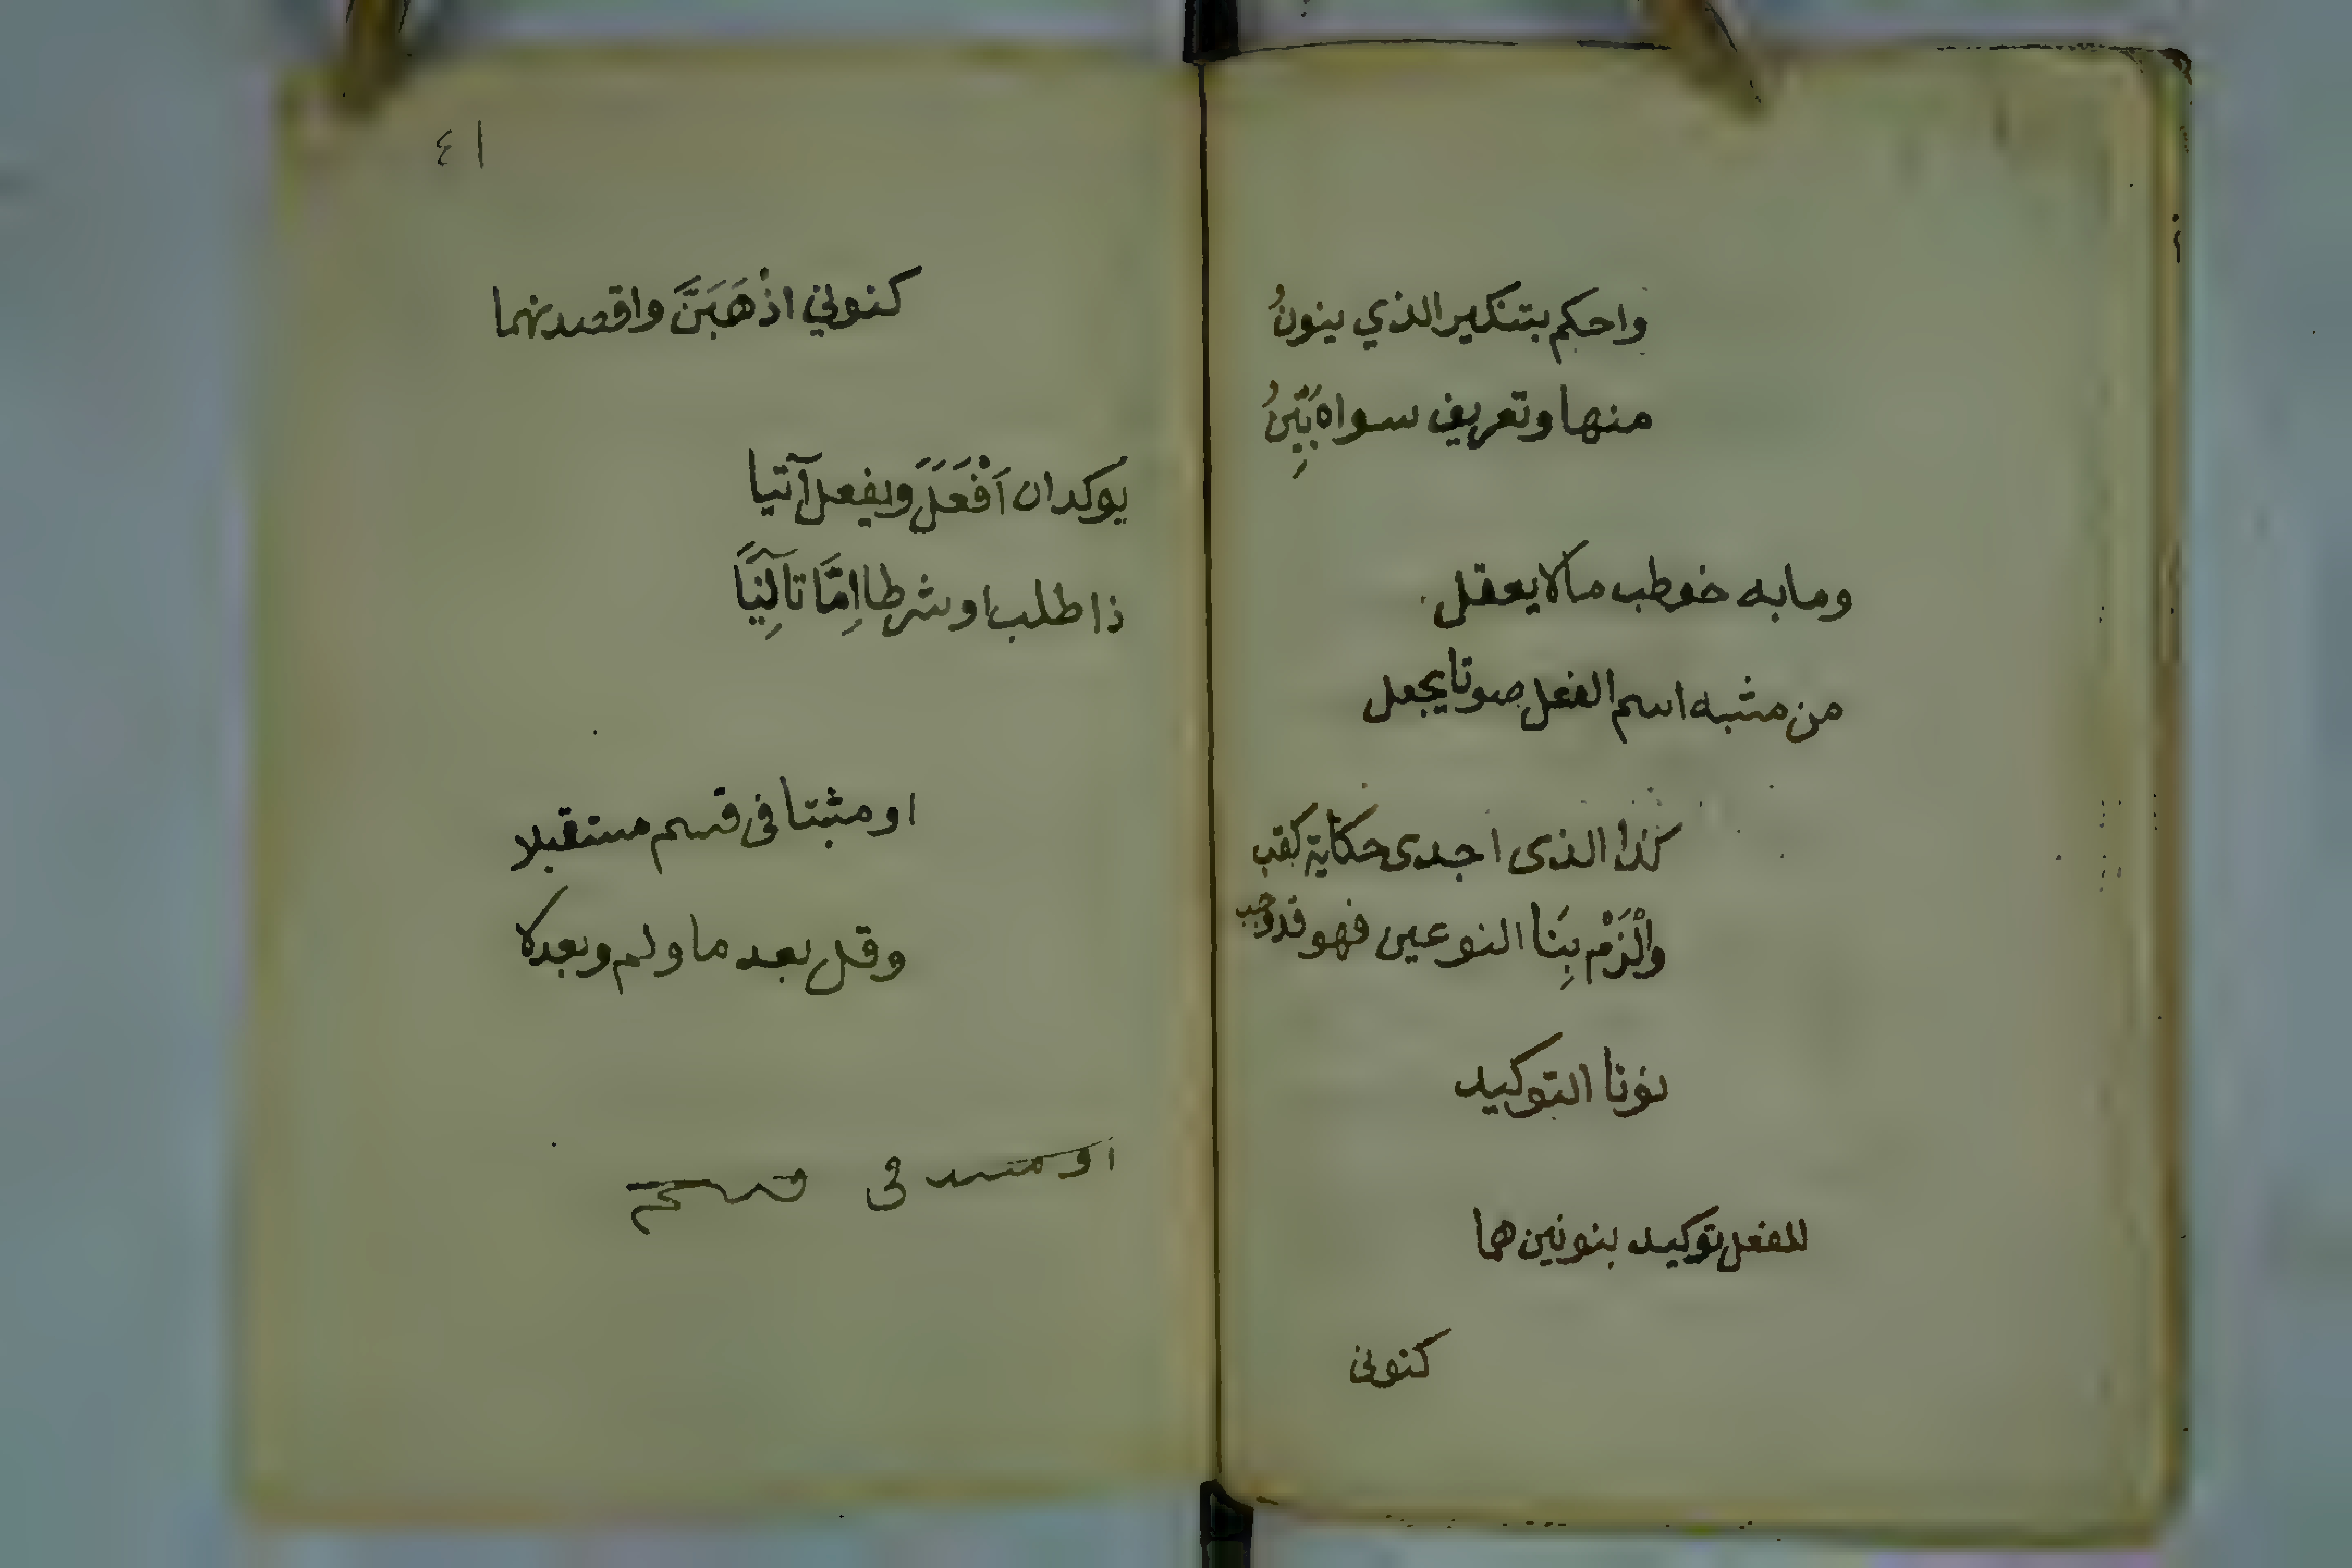 واحكم بتنكير الذي ينونُ
منها وتعريف سواه بَيِّنُ
وما به خوطب مالا يعقل
من مشبه اسم الفعل صوتا يجعل
كذا الذى اجدى حكاية كقب
والْزَمْ بِنَا النوعين فهو قد وجب
نونا التوكيد
للفعل توكيد بنونين هما
كنونى
٤١
كنوني اذْهَبَنَّ واقصدنهما
يوكدان اَفْعَلَ ويفعل آتيا
ذا طلب او شرطا اِمَّا تآلِيَا
او مثبتا فى قسم مستقبلا
وقل بعد ما ولم وبعد لا
او مثبتا فى قسم